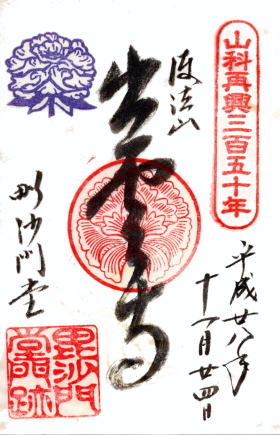 山科再興三百五十年
平成廿八年
十一月廿四日
護法山
出雲寺
毗沙門堂
毘沙門
堂門跡